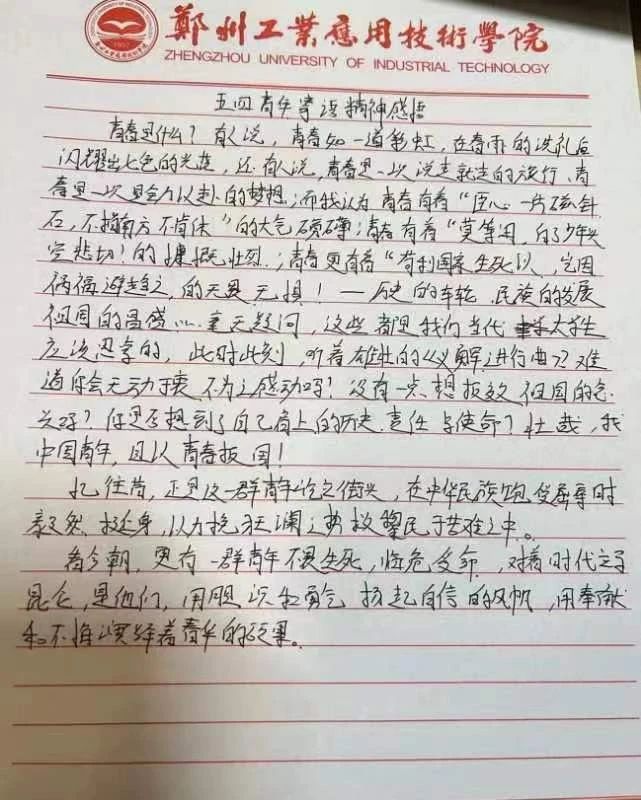 鄭州工業應用技術學院
ZHENGZHOU UNIVERSITY OF INDUSTRIAL TECHNOLOGY
五四青年寄语精神感悟
青春是什么？有人说，青春如一道彩虹，在春雨的洗礼后
闪耀出七色的光芒，还有人说，青春是一次说走就走的旅行、青
春是一次全力以赴的梦想；而我认为青春有着“臣心一片磁针
石，不指南方不肯休”的大气磅礴；青春有着“莫等闲，白了少年头
空悲切！的慷慨壮烈；青春更有着“苟利国家生死以，岂因
祸福避趋之，的无畏无惧！一历史的车轮、民族的发展
祖国的昌盛 毫无疑问，这些都是我们当代大学生
应该思考的，此时此刻，听着雄壮的《义勇军进行曲》难
道你会无动于衷不为之感动吗？没有一点想报效祖国的念
头吗？你是否想到了自己肩上的历史责任与使命？壮哉，我
中国青年，且以青春报国！
忆往昔，正是这一群青年屹立街头，在中华民族饱受屈辱时
毅然挺身，以力挽狂澜之势救黎民于苦难之中。
看今朝，更有一群青年不畏生死，临危受命，对着时代之
昆仑，是他们，用胆识和勇气扬起自信的风帆，用奉献
和不悔演绎着青华的硕果。